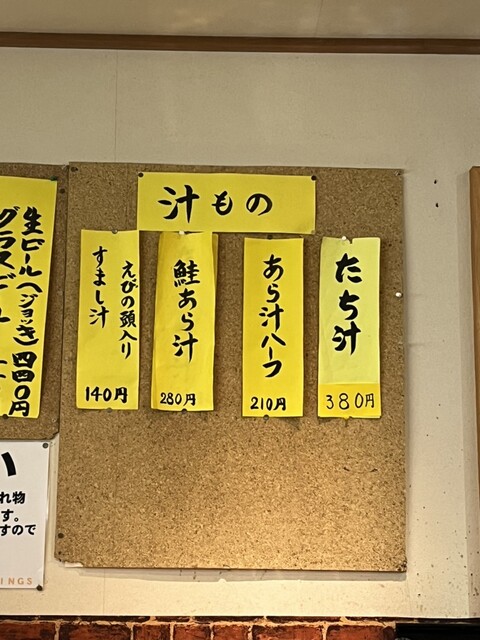 汁もの
たち汁
380円
あら汁ハーフ
210円
鮭あら汁
280円
えびの頭入り
すまし汁
140円
生ビール(ジョッキ)四四〇円
グラスビー
い
れ物
す。
すので
INGS